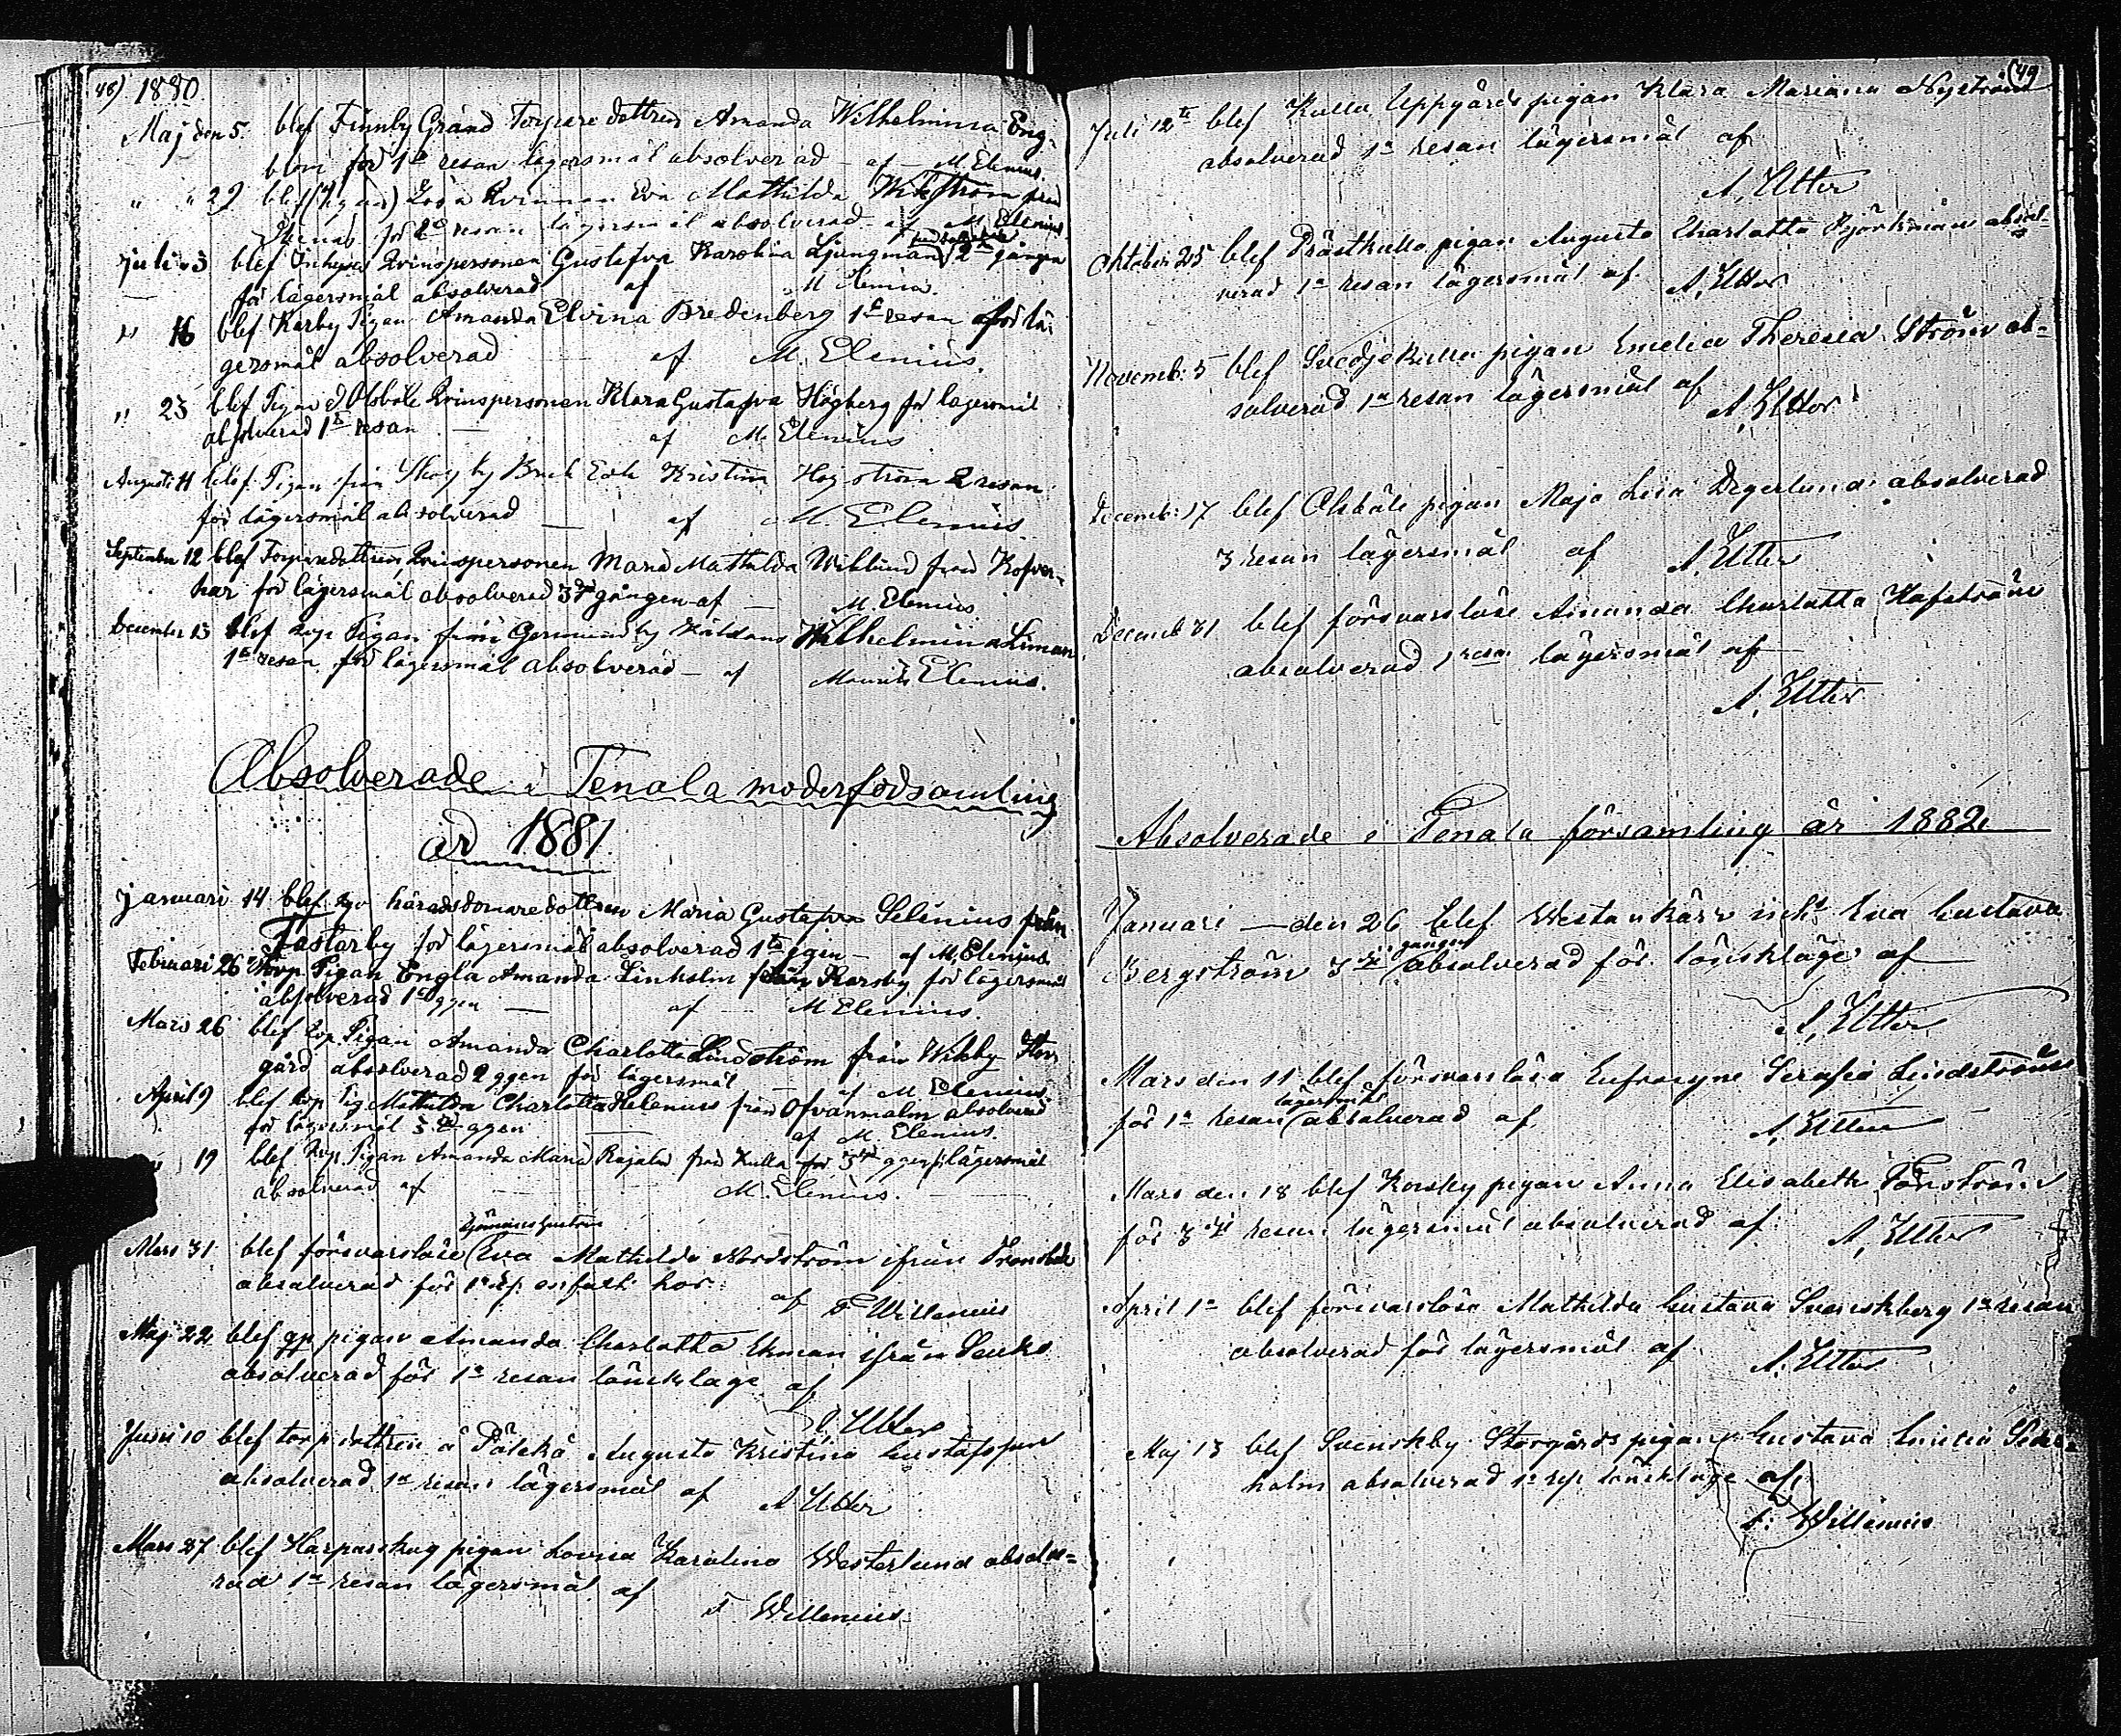 48) 1880
Maj den 5. blef Finnby Gränd Torpare dottren Amanda Wilhelmina Eng-
blom för 1a resan lägersmål absolverad – af – M. Elenius.
" " 29 blef Lösa Kvinnan Eva Mathilda Wikström från
för 2a resan lägersmål absolverad – af M. Elenius.
Juli 3 blef Inhyses Kvinspersonen Gustafva Karolina Ljungman 2a gången
för lägersmål absolverad af M Elenius.
" 16 blef Karby Pigan Amanda Elvina Bredenberg 1a resan för lä-
gersmål absolverad af M. Elenius.
" 23 blef Pigan Olsböle Kvinspersonen Klara Gustafva Högberg för lägersmål
absolverad 1a resan – af M. Elenius
Augusti 11 blef Pigan från Skogby Bruk Kristina Högström 2 resan
för lägersmål absolverad – af M. Elenius
September 12 blef Torparedottren Kvinspersonen Maria Mathilda Wiklund från Kofver-
har för lägersmål absolverad 3dje gången af – M. Elenius
December 13 blef Pigan från Germundby Wilhelmina Liman
1a resan för lägersmål absolverad – af Elenius.
Absolverade i Tenala moderförsamling
år 1881
Januari 14 blef häradsdomaredottren Maria Gustafva Selenius från
Fasterby för lägersmål absolverad 1ta ggen – af M. Elenius
Februari 26 Pigan Engla Amanda Linholm från Karsby för lägersmål
absolverad 1a ggen – af – M Elenius.
Mars 26 blef Pigan Amanda Charlotta Lindström från Wikby Stor
gård absolverad 2 ggen för lägersmål – af M. Elenius
April 9 blef Mathilda Charlotta Helenius från Ofvanmalm absolverad
för lägersmål 3dje ggen – af M. Elenius.
" 19 blef Pigan Amanda Maria från Kulla för 3dje ggen lägersmål
absolverad af – M. Elenius. –
Mars 31 blef försvarslösa Eva Mathilda Nordström ifrån
absolverad för 1a enfalt hor af F Willenius
Maj 22 blef pigan Amanda Charlotta Ekman ifrån
absolverad för 1a resan lönskläge af
A, Utter
Juni 10 blef torp. dottren å Pålskä Augusta Kristina Gustafsson
absolverad 1a resan lägersmål af A Utter
Mars 27 blef Harparskog pigan Lovisa Karolina Westerlund absolve-
rad 1a resan lägersmål af
F Willenius
(49
Juli 12te blef Kulla Uppgårds pigan Klara Mariana Nyström
absolverad 1a resan lägersmål af
A, Utter
Oktober 25 blef Prästkulla pigan Augusta Charlotta Björkman absol-
verad 1a resan lägersmål af A, Utter
Novemb: 5 blef Svedjekulla pigan Emelia Theresia Ström ab-
solverad 1a resan lägersmål af A, Utter
Decemb: 17 blef Olsböle pigan Maja Lisa Degerlund absolverad
3 resan lägersmål af A, Utter
Decemb 31 blef försvarslösa Amanda Charlotta Hafström
absolverad 1 resan lägersmål af
A, Utter
Absolverade i Tenala församling år 1882.
Januari – den 26 blef Westankärr Eva Gustava
Bergström 3dje gången absolverad för lönskläge af
A, Utter
Mars den 11 blef försvarslösa Eufrosyne Serafia Lindström
för 1a resan lägersmål absolverad af A, Utter
Mars den 18 blef Korsby pigan Anna Elisabeth
för 3dje resan lägersmål absolverad af A, Utter
April 1a blef försvarslösa Mathilda Gustava Svenskberg 1a resan
absolverad för lägersmål af A. Utter
Maj 13 blef Svenskby Storgårds pigan Gustava
holm absolverad 1a lönskläge af
F. Willenius